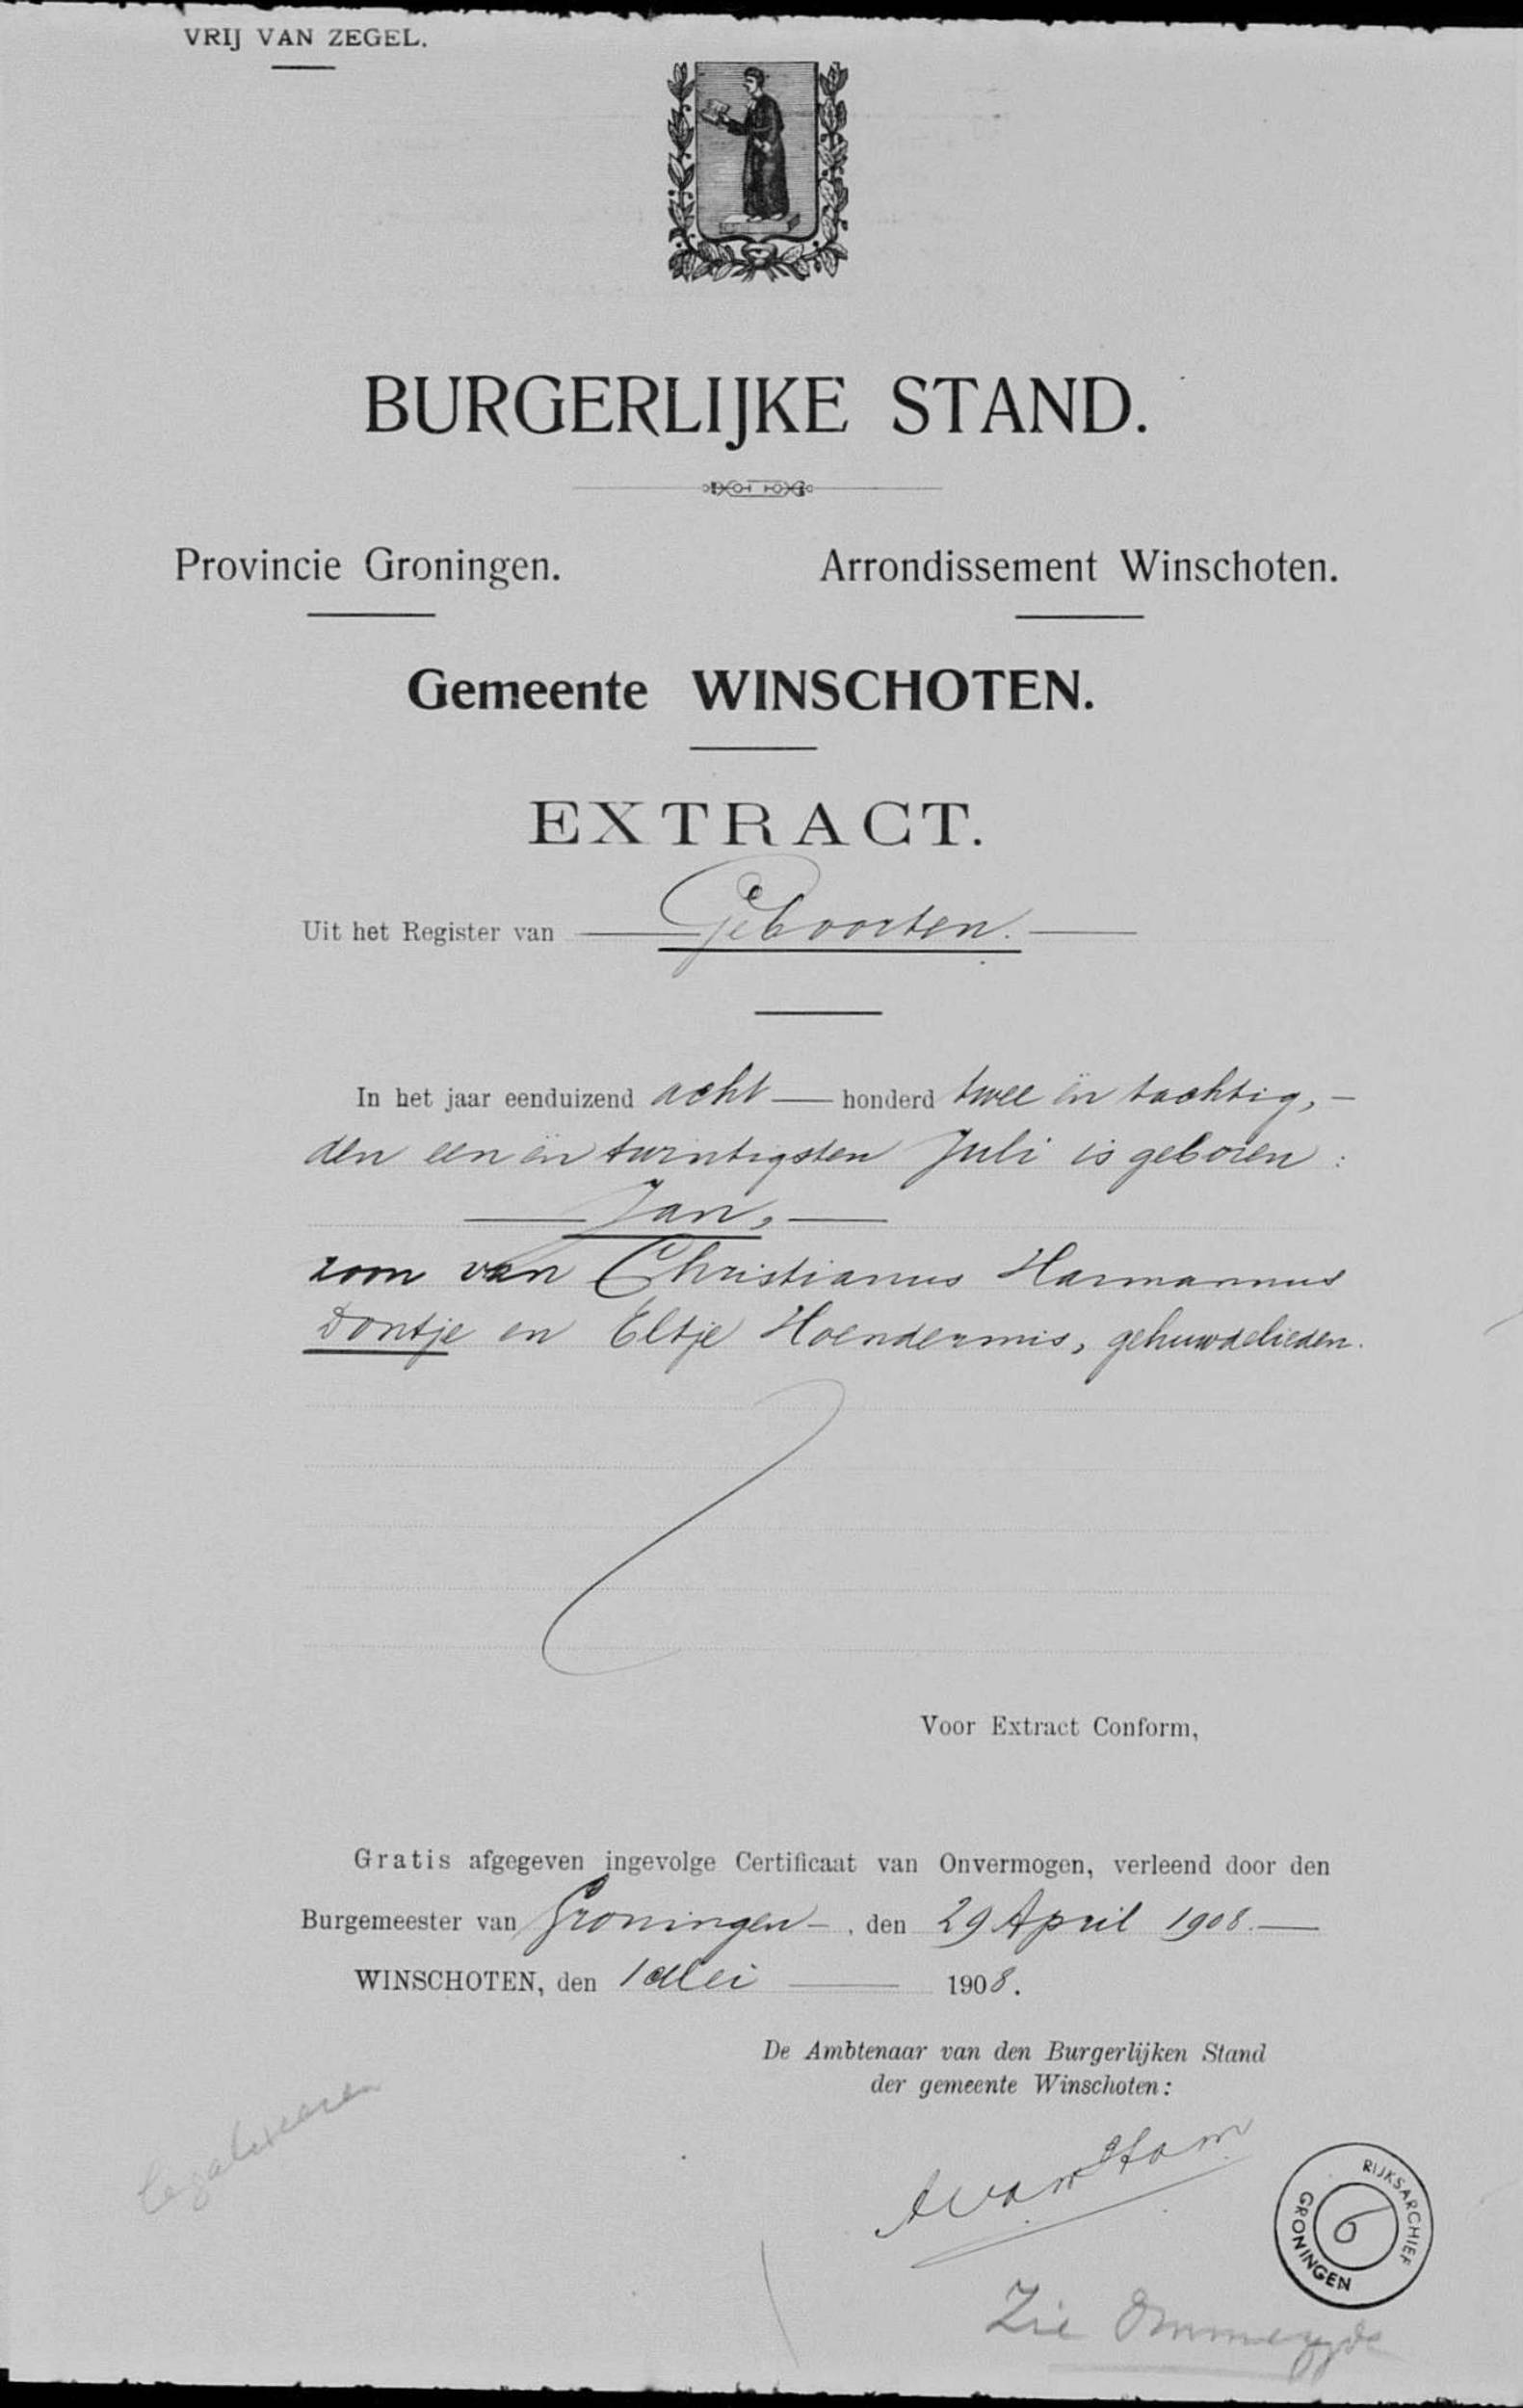 VRIJ VAN ZEGEL.
BURGERLIJKE STAND.
Provincie Groningen.
Arrondissement Winschoten.
Gemeente WINSCHOTEN.
EXTRACT.
Uit het Register van Geboorten.
In het jaar eenduizend acht honderd twee ën tachtig,
den een ën twintigsten Juli is geboren:
Jan,
zoon van Christianus Harmannus
Dontje en Eltje Hoendermis, gehuwdelieden.
Voor Extract Conform,
Gratis afgegeven ingevolge Certificaat van Onvermogen, verleend door den
Burgemeester van Groningen, den 29 April 1908.
WINSCHOTEN, den 1 Mei 1908.
De Ambtenaar van den Burgerlijken Stand
der gemeente Winschoten:
legaliseeren
AvanStam
RIJKSARCHIEF
6
GRONINGEN
Zie Ommezyde